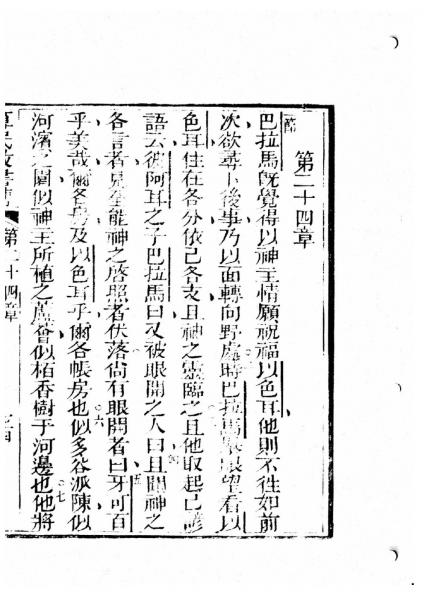 第二十四章
巴拉馬既覺得以神主情願祝福以色耳他則不徃如前
次欲尋卜後事乃以面轉向野處時巴拉馬舉眼望看以
色耳住在各分依己各支且神之靈臨之且他取起己諺
語云彼阿耳之子巴拉馬曰又被眼開之人曰且聞神之
各言者見全能神之啓照者伏落尚有眼開者曰牙可百
乎美哉爾各房及以色耳乎爾各帳房也似多谷派陳似
河濱之園似神主所植之蘆薈似栢香樹于河邊也他將
第二十四章